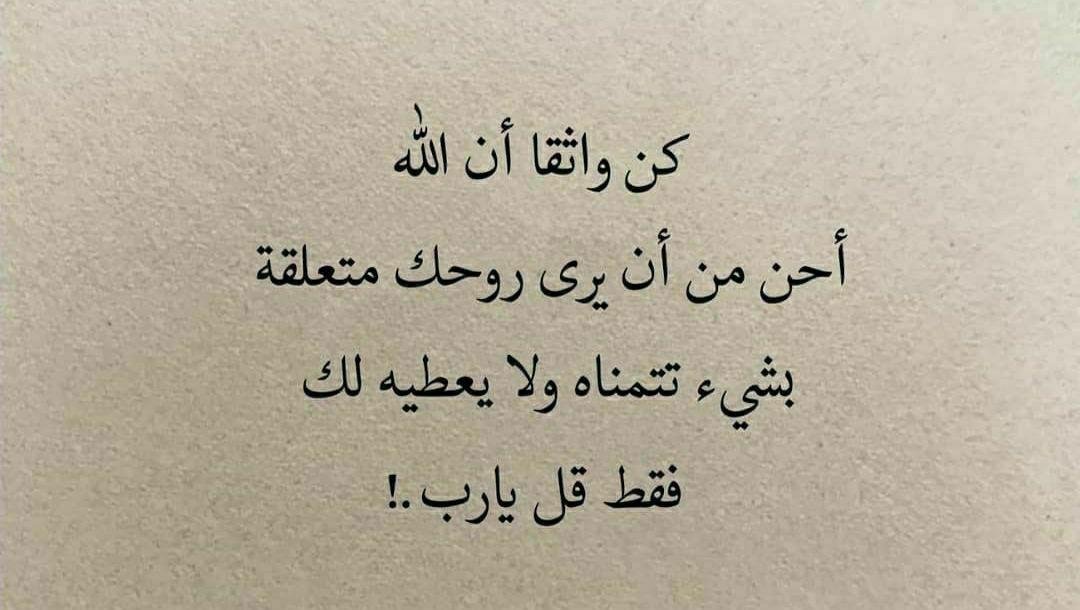 كن واثقا أن الله
أحن من أن يرى روحك متعلقة
بشيء تتمناه ولا يعطيه لك
فقط قل يارب.!